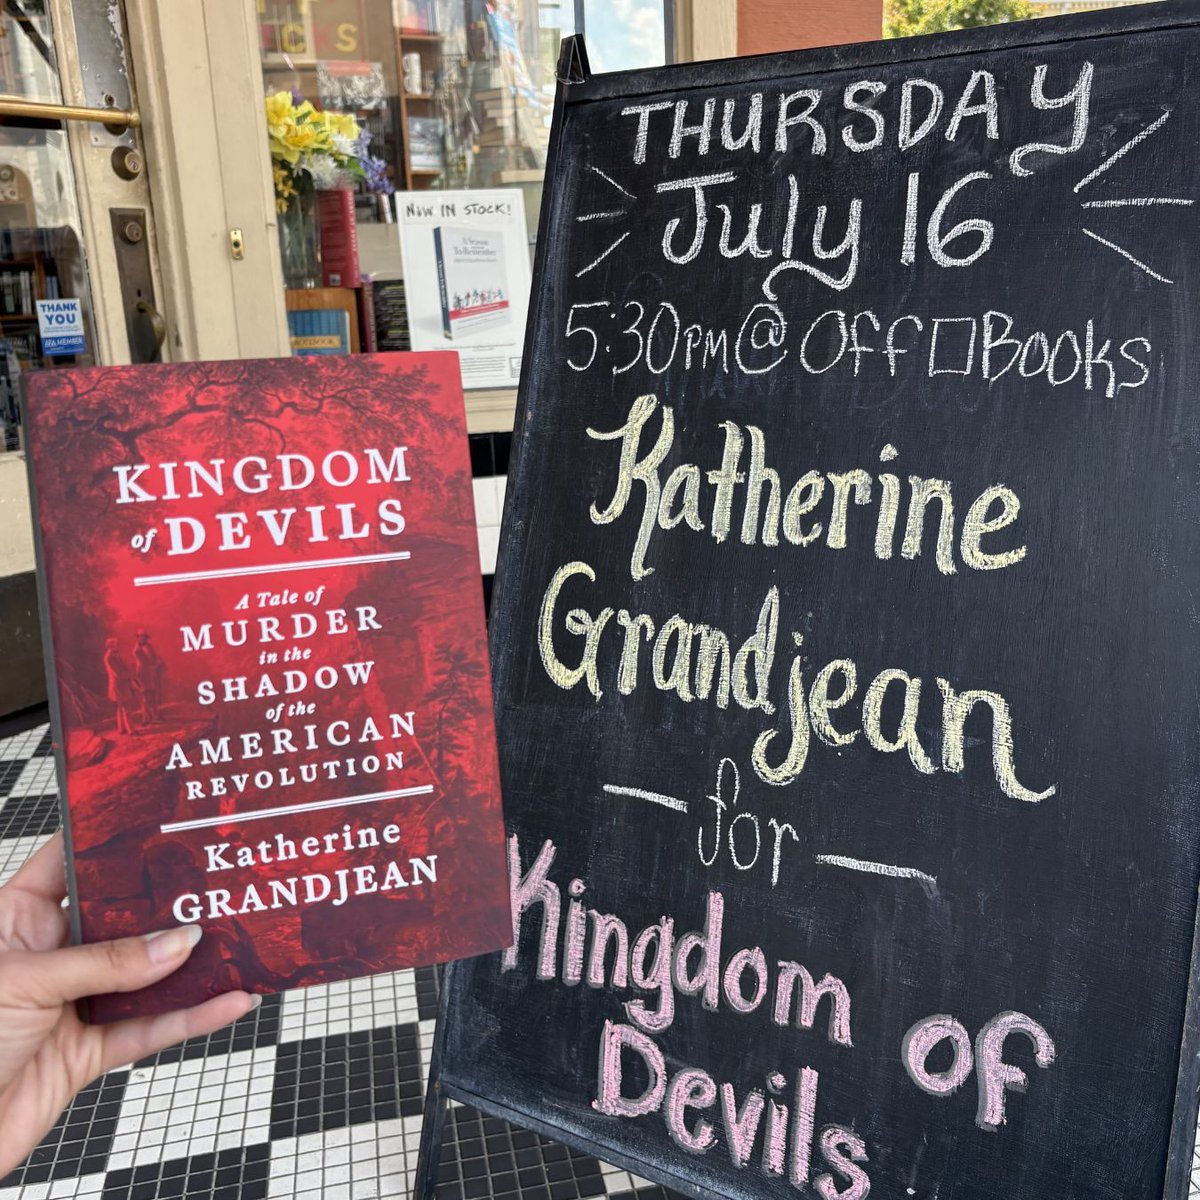 KINGDOM
of DEVILS
A Tale of
MURDER
in the
SHADOW
of the
AMERICAN
REVOLUTION
Katherine
GRANDJEAN
THURSDAY
July 16
5:30PM @ Off □ Books
Katherine
Grandjean
for
Kingdom of
Devils
NOW IN STOCK!
A Season
To Remember
THANK
YOU
MEMBER